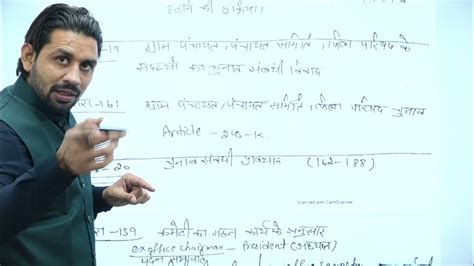 हटाने की प्रक्रिया।
-19 ग्राम पंचायत, पंचायत समिति, जिला परिषद के
सदस्यों का चुनाव संबंधी विवाद
धारा-161 ग्राम पंचायत, पंचायत समिति, जिला परिषद चुनाव
Article - 243-K.
-20 चुनाव संबंधी प्रावधान (162-188)
Scanned with CamScanner
धारा-189 कमेटी का गठन कार्य के अनुसार
ex office chairman - President (अध्यक्ष)